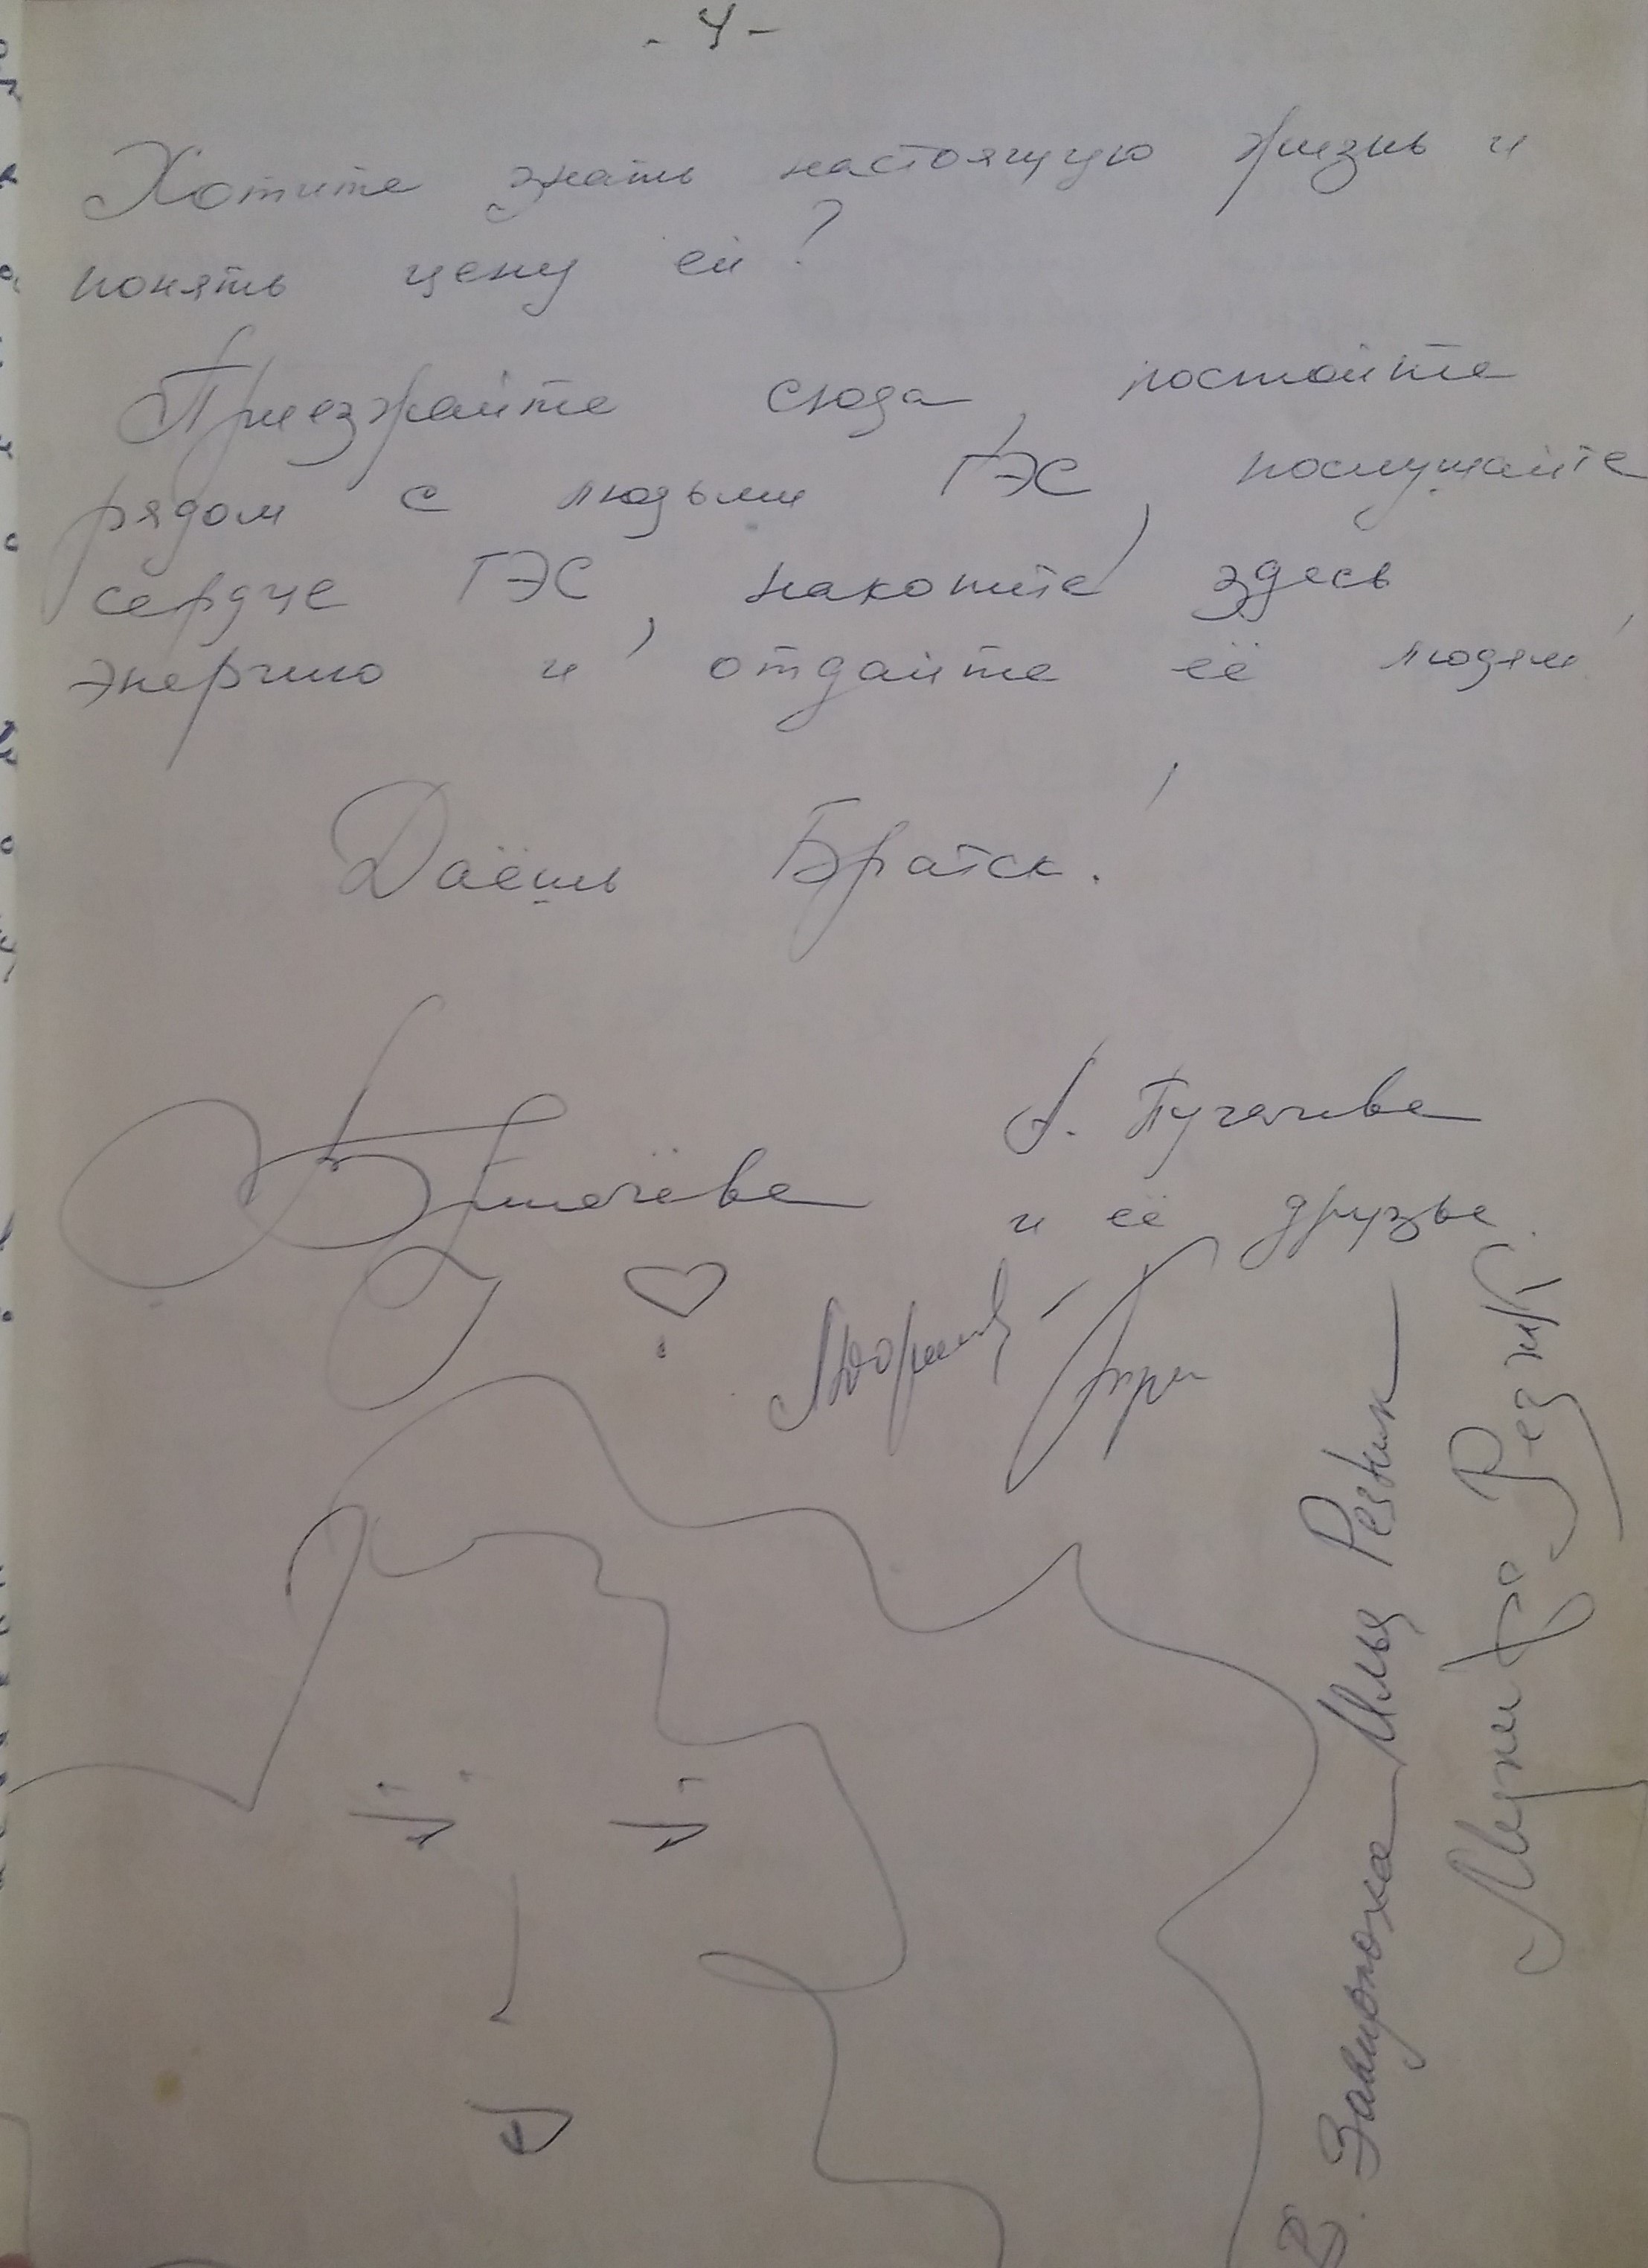 - 4 -
Хотите знать настоящую жизнь и
понять цену ей?
Приезжайте сюда, постойте
рядом с людьми ГЭС, послушайте
сердце ГЭС, накопите здесь
энергию и отдайте её людям!
Даёшь Братск!
А. Пугачёва
А. Пугачева
и её друзья
Илья Резник
Резник